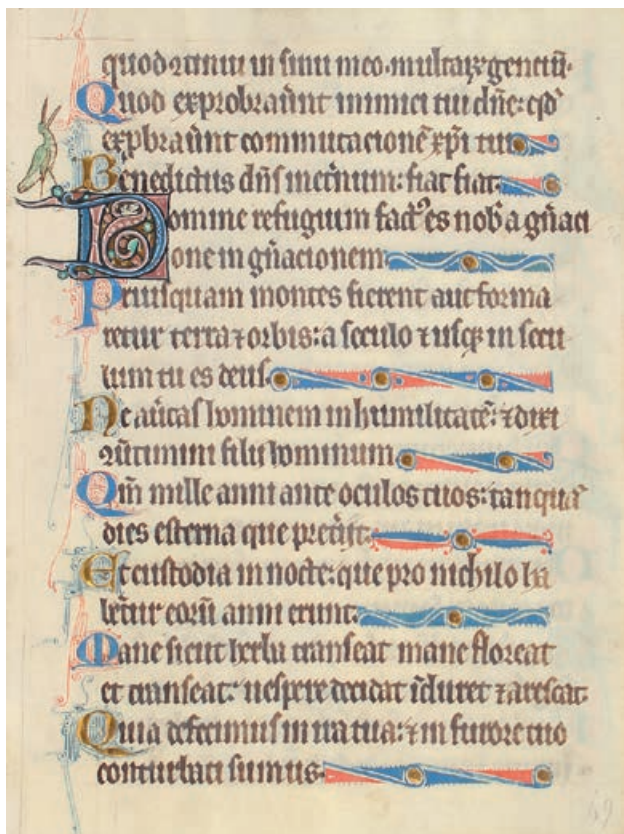 quod ꝯtinui in sinu meo. multaꝝ genciū.
Quod exprobraũnt inimici tui dñe: qđ
expbraũnt commutacionē xp̄i tui
Benedictus dñs inet̃num: fiat fiat.
Domine refugium factꝰ es nob̃ a gñaci
one in gñacionem
Priusquam montes fierent aut forma
retur terra ⁊ orbis: a seculo ⁊ usqꝫ in secu
lum tu es deus.
Ne aũtas hominem in humilitatē: ⁊ dixi
ꝯũtimini filii hominum
Qm̄ mille anni ante oculos tuos: tanquā
dies esterna que pret̃ijt.
Et custodia in nocte: que pro nichilo ha
bẽtur eorū anni erunt.
Mane sicut herba transeat mane floreat
et transeat: uespere decidat īduret ⁊ arescat.
Quia defecimus in ira tua: ⁊ in furore tuo
conturbati sumus.
49